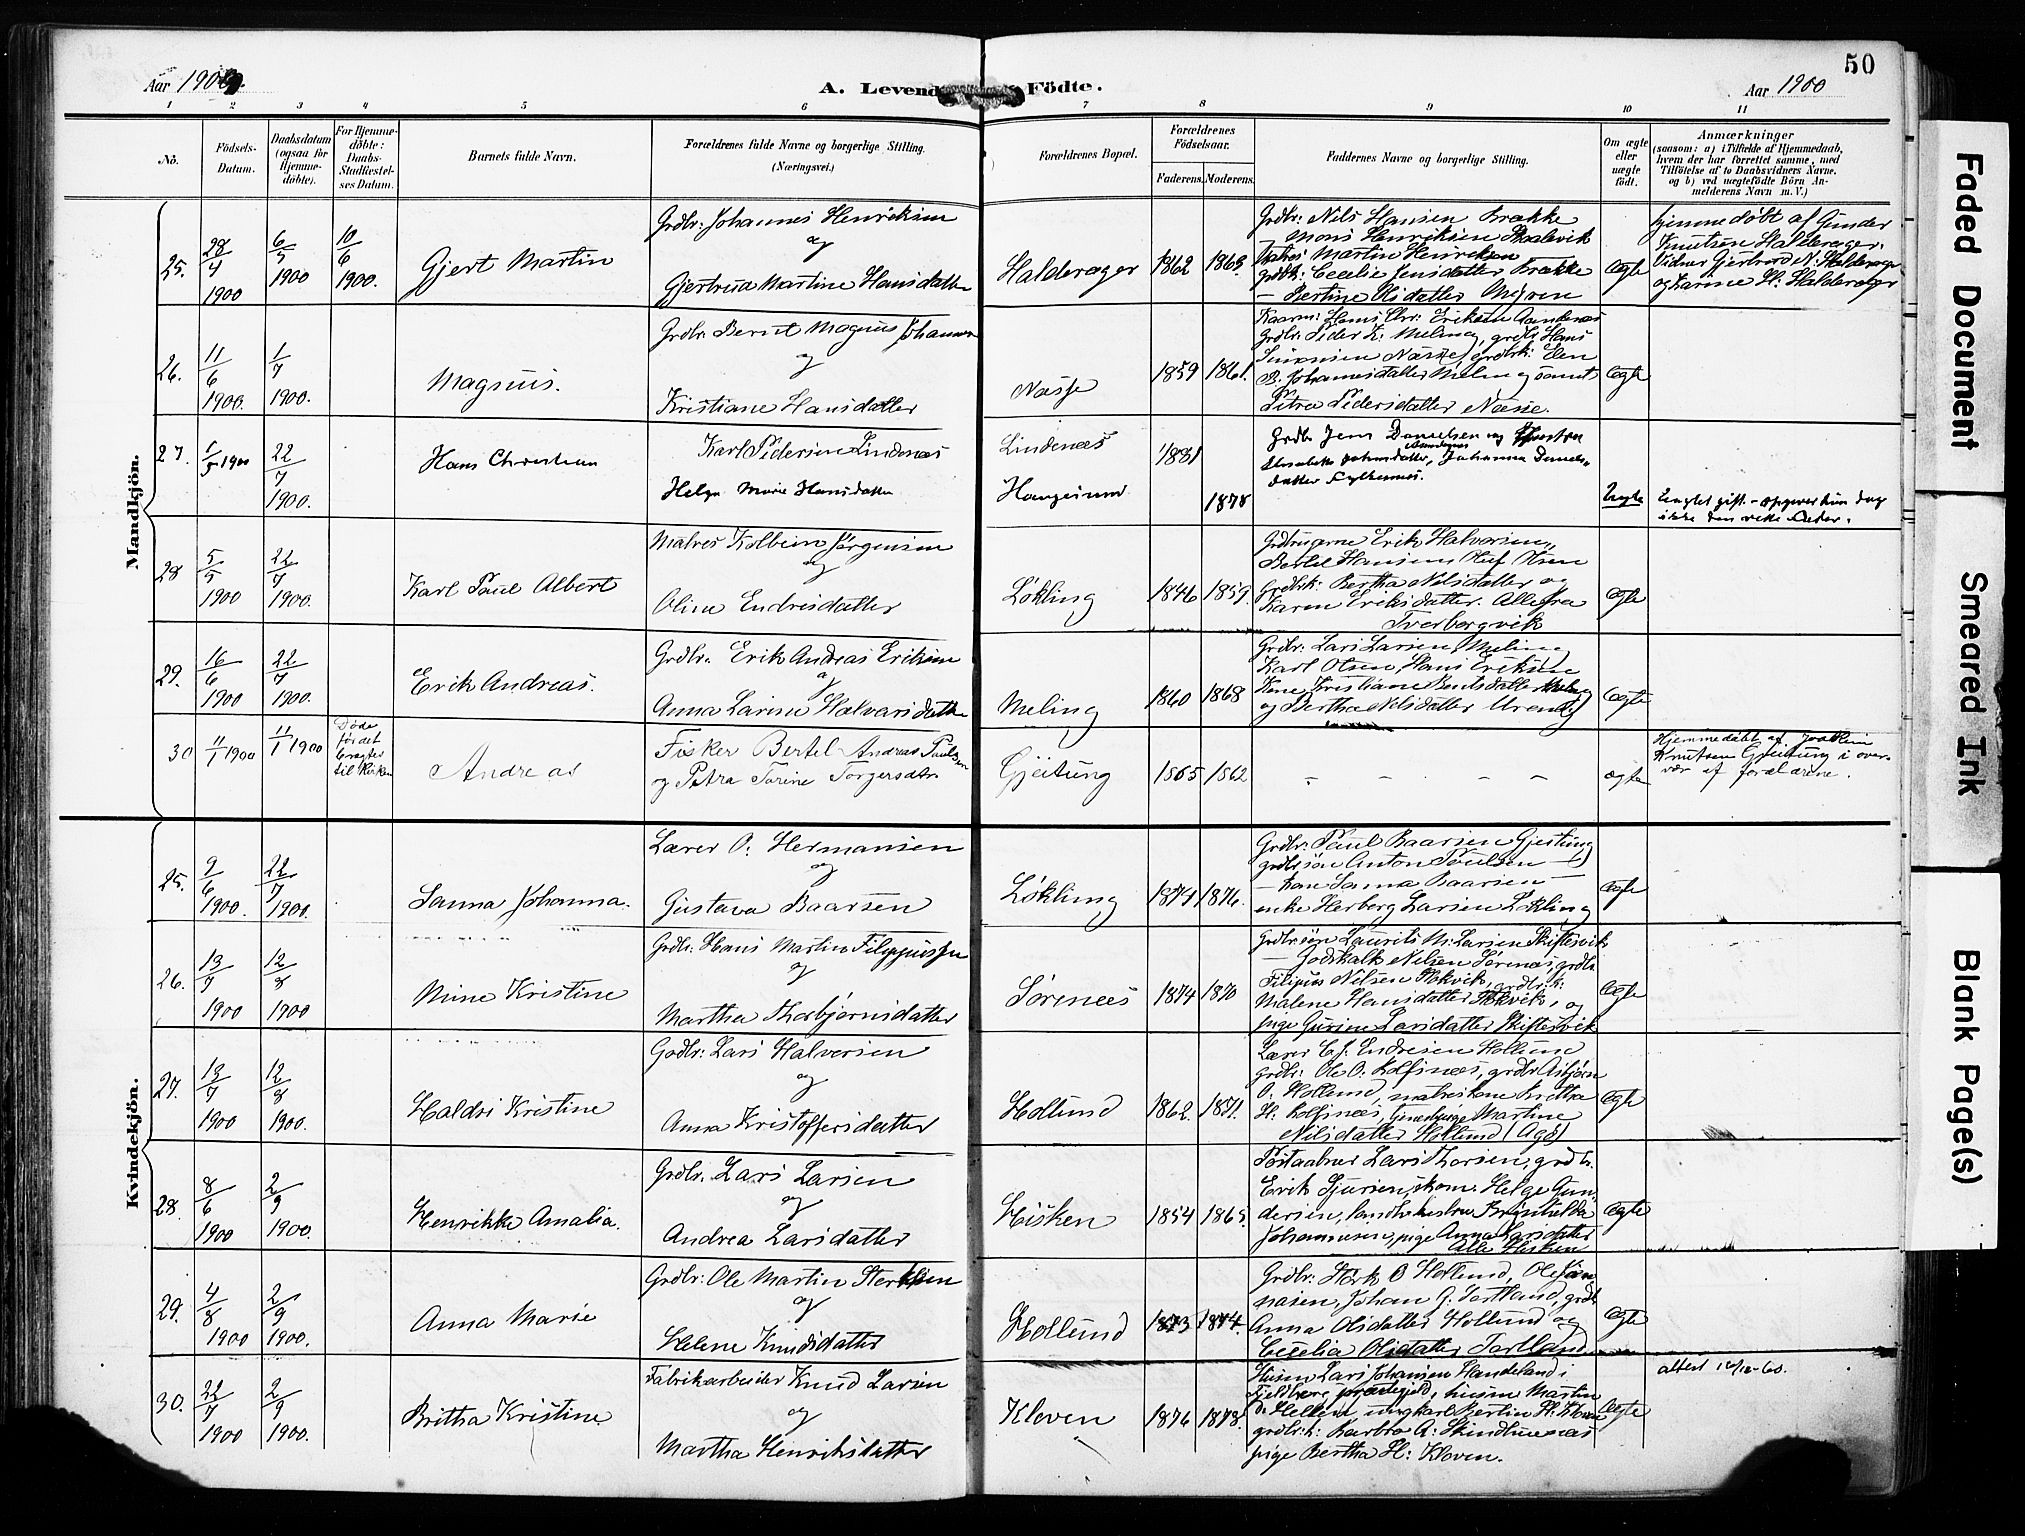 50
Aar 1900.
A. Levende Födte.
Aar 1900
1 2 3 4 5 6 7 8 9 10 11
No.
Födsels-Datum.
Daabsdatum (ogsaa for Hjemme-döbte).
For Hjemme-döbte: Daabs-Stadfæstel-ses Datum.
Barnets fulde Navn.
Forældrenes fulde Navne og borgerlige Stilling.
(Næringsvei.)
Forældrenes Bopæl.
Forældrenes Födselsaar.
Faderens. Moderens.
Faddernes Navne og borgerlige Stilling.
Om ægte eller uægte født.
Anmærkninger
(saasom: a) i Tilfælde af Hjemmedaab, hvem der har forrettet samme, med Tilföielse af to Daabsvidners Navne. og b) ved uægtefödte Börn An-melderens Navn m. V.)
Mandkjön.
25. 28/4 1900 6/5 1900 10/6 1900. Gjert Martin
Grdbr: Johannes Henriksen
og
Gjertrud Martine Hansdatter
Halderager 1862 1863.
Grdbr: Nils Hansen Brække
Mons Henriksen
Matros: Martin Henriksen
grdbrk: Cecelie Jensdatter Brække
– Bertine Olsdatter
Ægte
hjemmedöbt af Gunder
Knutsen Halderager.
Vidner Gjertrud N. Halderager
og Karine H: Halderager
26. 11/6 1900. 1/7 1900. Magnus.
Grdbr. Bernt Magnus Johannesen
og
Kristiane Hansdatter
Næsse 1859 1861.
Kaarm: Hans Chr. Eriksen
Grdbr: Peder K: Meling, grdbr: Hans
Simonsen Næsse, grdbrk: Elen
B. Johannesdatter Meling samt
Petra Pedersdatter Næsse.
Ægte
27. 1/5 1900 22/7 1900. Hans Christian
Karl Pedersen Lindenæs
Helga Marie Hansdatter
Lindenæs 1881
Haugesund 1878
Grdbr Jens Danielsen og
Elisabeth Johansdatter, Johanna Daniels-
datter
Uægte
28 5/5 1900 22/7 1900. Karl Paul Albert
Matros Kolbein Jørgensen
og
Oline Endresdatter
Løkling 1846 1859.
Grdbrugerne Erik Halvorsen,
Bertel Hansen, Oluf Olsen
Grdbrk: Bertha Nilsdatter og
Karen Eriksdatter. Alle fra
Tverborgvik
Ægte
29. 16/6 1900 22/7 1900. Erik Andreas.
Grdbr. Erik Andreas Eriksen
og
Anna Larine Halvorsdatter
Meling 1860 1868
Grdbr: Lars Larsen Meling
Karl Olsen, Hans Eriksen
Kone Kristiane Berntsdatter Meling
og Bertha Nilsdatter
Ægte
30 11/1 1900 11/1 1900
Døde
før det
bragtes
til Kirken
Andreas
Fisker Bertel Andreas Paulsen
og Petra Tørine Torgersdtr.
Gjeitung 1865 1862
– – – –
ægte
Hjemmedøbt af Joakim
Knutsen Gjeitung i over-
vær af forældrene.
Kvindekjön.
25. 9/6 1900. 22/7 1900. Sanna Johanna.
Lærer O: Hermansen
og
Gustava Baarsen
Løkling 1871 1876.
Grdbr: Paul Baarsen Gjeitung
grdbrsön Anton Paulsen –
– Kone Sanna Baarsen –
enke Herborg Larsen Løkling
Ægte
26. 13/7 1900 12/8 1900 Mine Kristine
Grdbr: Hans Martin Filippussen
og
Martha Thorbjørnsdatter
Sørenæs 1874 1870
Grdbrsön Laurits M: Larsen Skiftesvik
– Godskalk Nilsen Sørenæs, grdbr
Filipus Nilsen Stokvik, grdbrk:
Malene Hansdatter Stokvik, og
pige Gurine Larsdatter Skiftesvik
Ægte
27. 13/7 1900 12/8 1900. Haldri Kristine
Grdbr: Lars Halvorsen
og
Anna Kristoffersdatter
Hollund 1862. 1871.
Lærer E. J. Endresen Hollund
grdbr: Ole O: Kolfinæs, grdbr Asbjørn
O. Hollund, matroskone Britha
H: Kolfinæs, tjenestepige Martine
Nilsdatter Hollund (Agö)
Ægte
28. 8/6 1900 2/9 1900. Henrikke Amalia.
Grdbr: Lars Larsen
og
Andrea Larsdatter
Hisken 1854 1865.
Postaabner Lars Thorsen, grdbr.
Erik Sjursen, skom: Helge Gun-
dersen, Landhandler Brynhilda
Johannesen, pige Anna Larsdatter
Alle Hisken
Ægte
29. 4/8 1900 2/9 1900. Anna Marie
Grdbr: Ole Martin Sterksen
og
Helene Knudsdatter
Hollund 1873 1874.
Grdbr: Størk O Hollund, Ole Jo-
nasen, Johan J. Tortland, grdbr
Anna Olsdatter Hollund og
Cecelia Olsdatter Tortland
Ægte
30. 22/7 1900 2/9 1900. Britha Kristine
Fabrikarbeider Knud Larsen
og
Martha Henriksdatter
Kloven 1876 1878.
Husm Lars Johansen Handeland i
Fjeldberg præstegjeld, husm Martin
O. ungkarl Bertin H: Kloven
grdbrk: Barbro A:
pige Bertha H: Kloven.
Ægte
attest 16/12-60.
Faded Document
Smeared Ink
Blank Page(s)